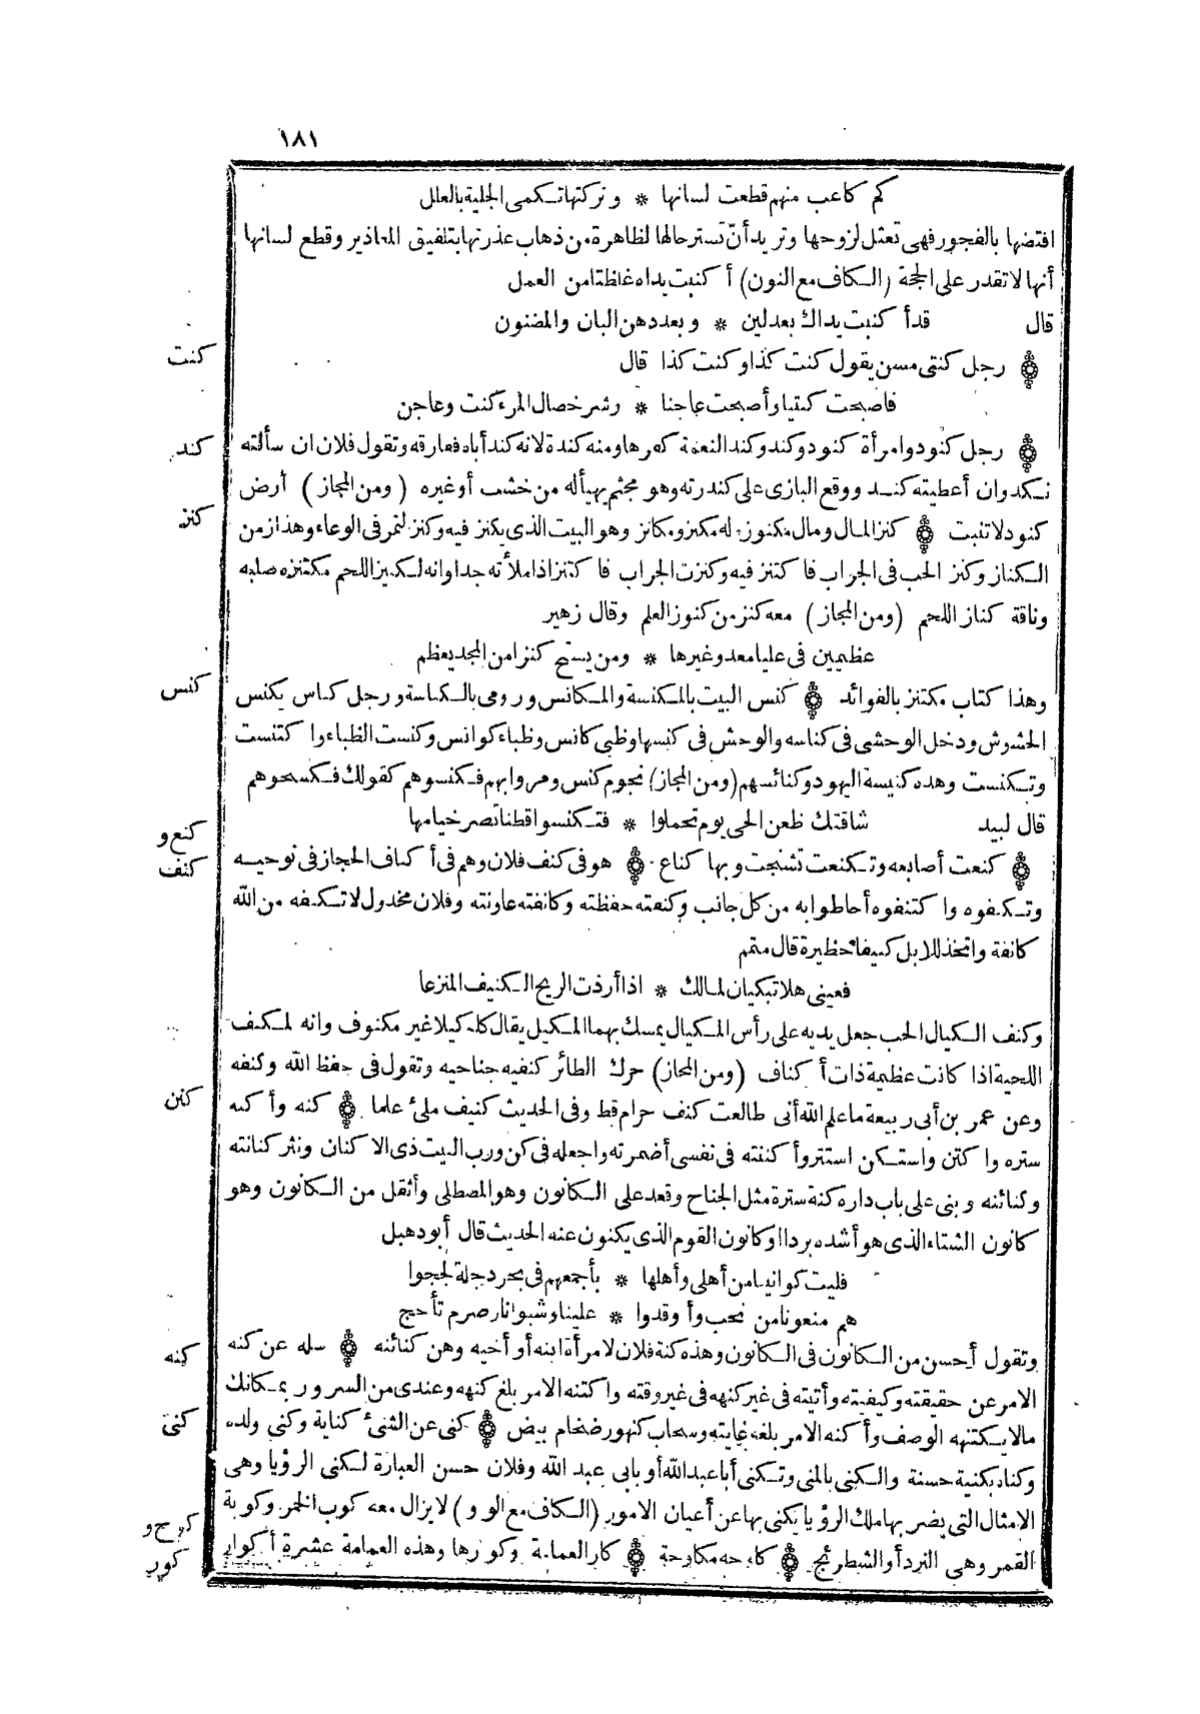 ١٨١
كم كاعب منهم قطعت لسانها * وتركتها تكمى الجلية بالعلل
افتضها بالفجور فهى تعتل لزوجها وتريد أن تستر حالها الظاهرة من ذهاب عذرتها بتلفيق المعاذير وقطع لسانها
أنها لا تقدر على الحجة (الكاف مع النون) أكنبت يداه غلظتا من العمل
قال قد أكنبت يداك بعد لين * وبعد دهن البان والمضنون
كنت
رجل كنتى مسن يقول كنت كذا وكنت كذا قال
فاصبحت كنتيا وأصبحت عاجنا * وشر خصال المرء كنت وعاجن
كند
رجل كنود وامرأة كنود وكند وكند النعمة كفرها ومنه كندة لانه كند أباه ففارقه وتقول فلان ان سألته
نكد وان أعطيته كند ووقع البازى على كندرته وهو مجثم يهيأ له من خشب أو غيره (ومن المجاز) أرض
كنز
كنود لا تنبت كنز المال ومال مكنوز له مكنز ومكانز وهو البيت الذى يكنز فيه وكنز التمر فى الوعاء وهذا زمن
الكناز وكنز الحب فى الجراب فاكتنز فيه وكنزت الجراب فاكتنز اذا ملأته جدا وانه لكنيز اللحم مكتنزه صلبه
وناقة كناز اللحم (ومن المجاز) معه كنز من كنوز العلم وقال زهير
عظيمين فى عليا معد وغيرها * ومن يستبح كنزا من المجد يعظم
كنس
وهذا كتاب مكتنز بالفوائد كنس البيت بالمكنسة والمكانس ورومى بالكناسة ورجل كناس يكنس
الحشوش ودخل الوحشى فى كناسه والوحش فى كنسها وظبى كانس وظباء كوانس وكنست الظباء واكتنست
وتكنست وهذه كنيسة اليهود وكنائسهم (ومن المجاز) نجوم كنس ومروا بهم فكنسوهم كقولك فكسحوهم
قال لبيد شاقتك ظعن الحى يوم تحملوا * فتكنسوا قطنا تصر خيامها
كنع و
كنف
كنعت أصابعه وتكنعت تشنجت وبها كناع هو فى كنف فلان وهم فى أكناف الحجاز فى نواحيه
وتكنفوه واكتنفوه أحاطوا به من كل جانب وكنفته حفظته وكانفته عاونته وفلان مخذول لا تكنفه من الله
كانفة واتخذ للابل كنيفا حظيرة قال متمم
فعينى هلا تبكيان لمالك * اذا أرذت الريح الكنيف المنزعا
وكنف الكيال الحب جعل يديه على رأس المكيال يمسك بهما المكيل يقال كله كيلا غير مكنوف وانه لمكنف
اللحية اذا كانت عظيمة ذات أكناف (ومن المجاز) حرك الطائر كنفيه جناحيه وتقول فى حفظ الله وكنفه
كنن
وعن عمر بن أبى ربيعة ما علم الله أنى طالعت كنف حرام قط وفى الحديث كنيف ملئ علما كنه وأكنه
ستره واكتن واستكن استتر وأكننته فى نفسى أضمرته واجعله فى كن ورب البيت ذى الاكنان ونثر كنانته
وكنائنه وبنى على باب داره كنة سترة مثل الجناح وقعد على الكانون وهو المصطلى وأثقل من الكانون وهو
كانون الشتاء الذى هو أشده بردا او كانون القوم الذى يكنون عنه الحديث قال أبو دهبل
فليت كوانينا من أهلى وأهلها * بأجمعهم فى بحر دجلة لججوا
هم منعونا من نحب وأوقدوا * علينا وشبوا نار صرم تأجج
كنه
وتقول أحسن من الكانون فى الكانون وهذه كنة فلان لامرأة ابنه أو أخيه وهن كنائنه سله عن كنه
الامر عن حقيقته وكيفيته وأتيته فى غير كنهه فى غير وقته واكتنه الامر بلغ كنهه وعندى من السرور بمكانك
كنى
مالا يكتنهه الوصف وأكنه الامر بلغ غايته وسحاب كنهور ضخام بيض كنى عن الشئ كناية وكنى ولده
وكناه بكنية حسنة والكنى بالمنى وتكنى أبا عبد الله أو بابى عبد الله وفلان حسن العبارة لكنى الرؤيا وهى
الامثال التى يضربها ملك الرؤيا يكنى بها عن أعيان الامور (الكاف مع الواو) لا يزال معه كوب الخمر وكوبة
كوح و
كور
القمر وهى النرد أو الشطرنج كاوحه مكاوحة كار العمامة وكورها وهذه العمامة عشرة أكوار